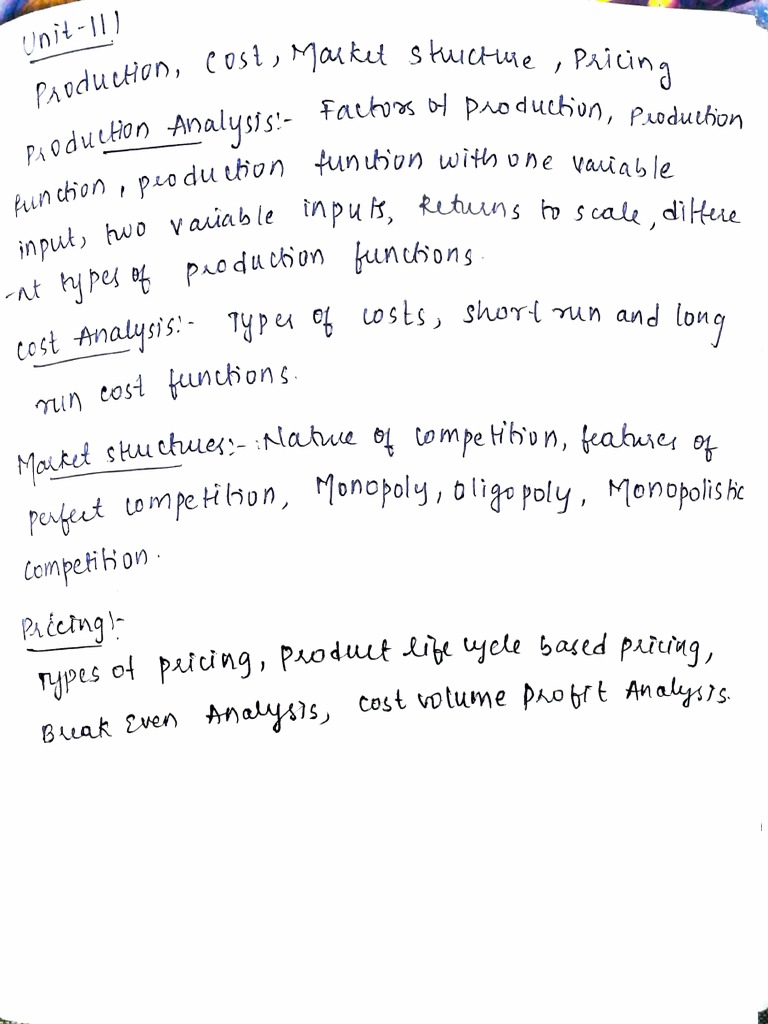 Unit-III
Production, Cost, Market Structure, Pricing
Production Analysis:- Factors of production, Production
function, production function with one variable
input, two variable inputs, Returns to scale, differe
-nt types of production functions.
Cost Analysis:- Types of costs, short run and long
run cost functions.
Market structures:- Nature of competition, features of
perfect competition, Monopoly, Oligopoly, Monopolistic
competition.
Pricing:-
Types of pricing, product life cycle based pricing,
Break Even Analysis, cost volume profit Analysis.